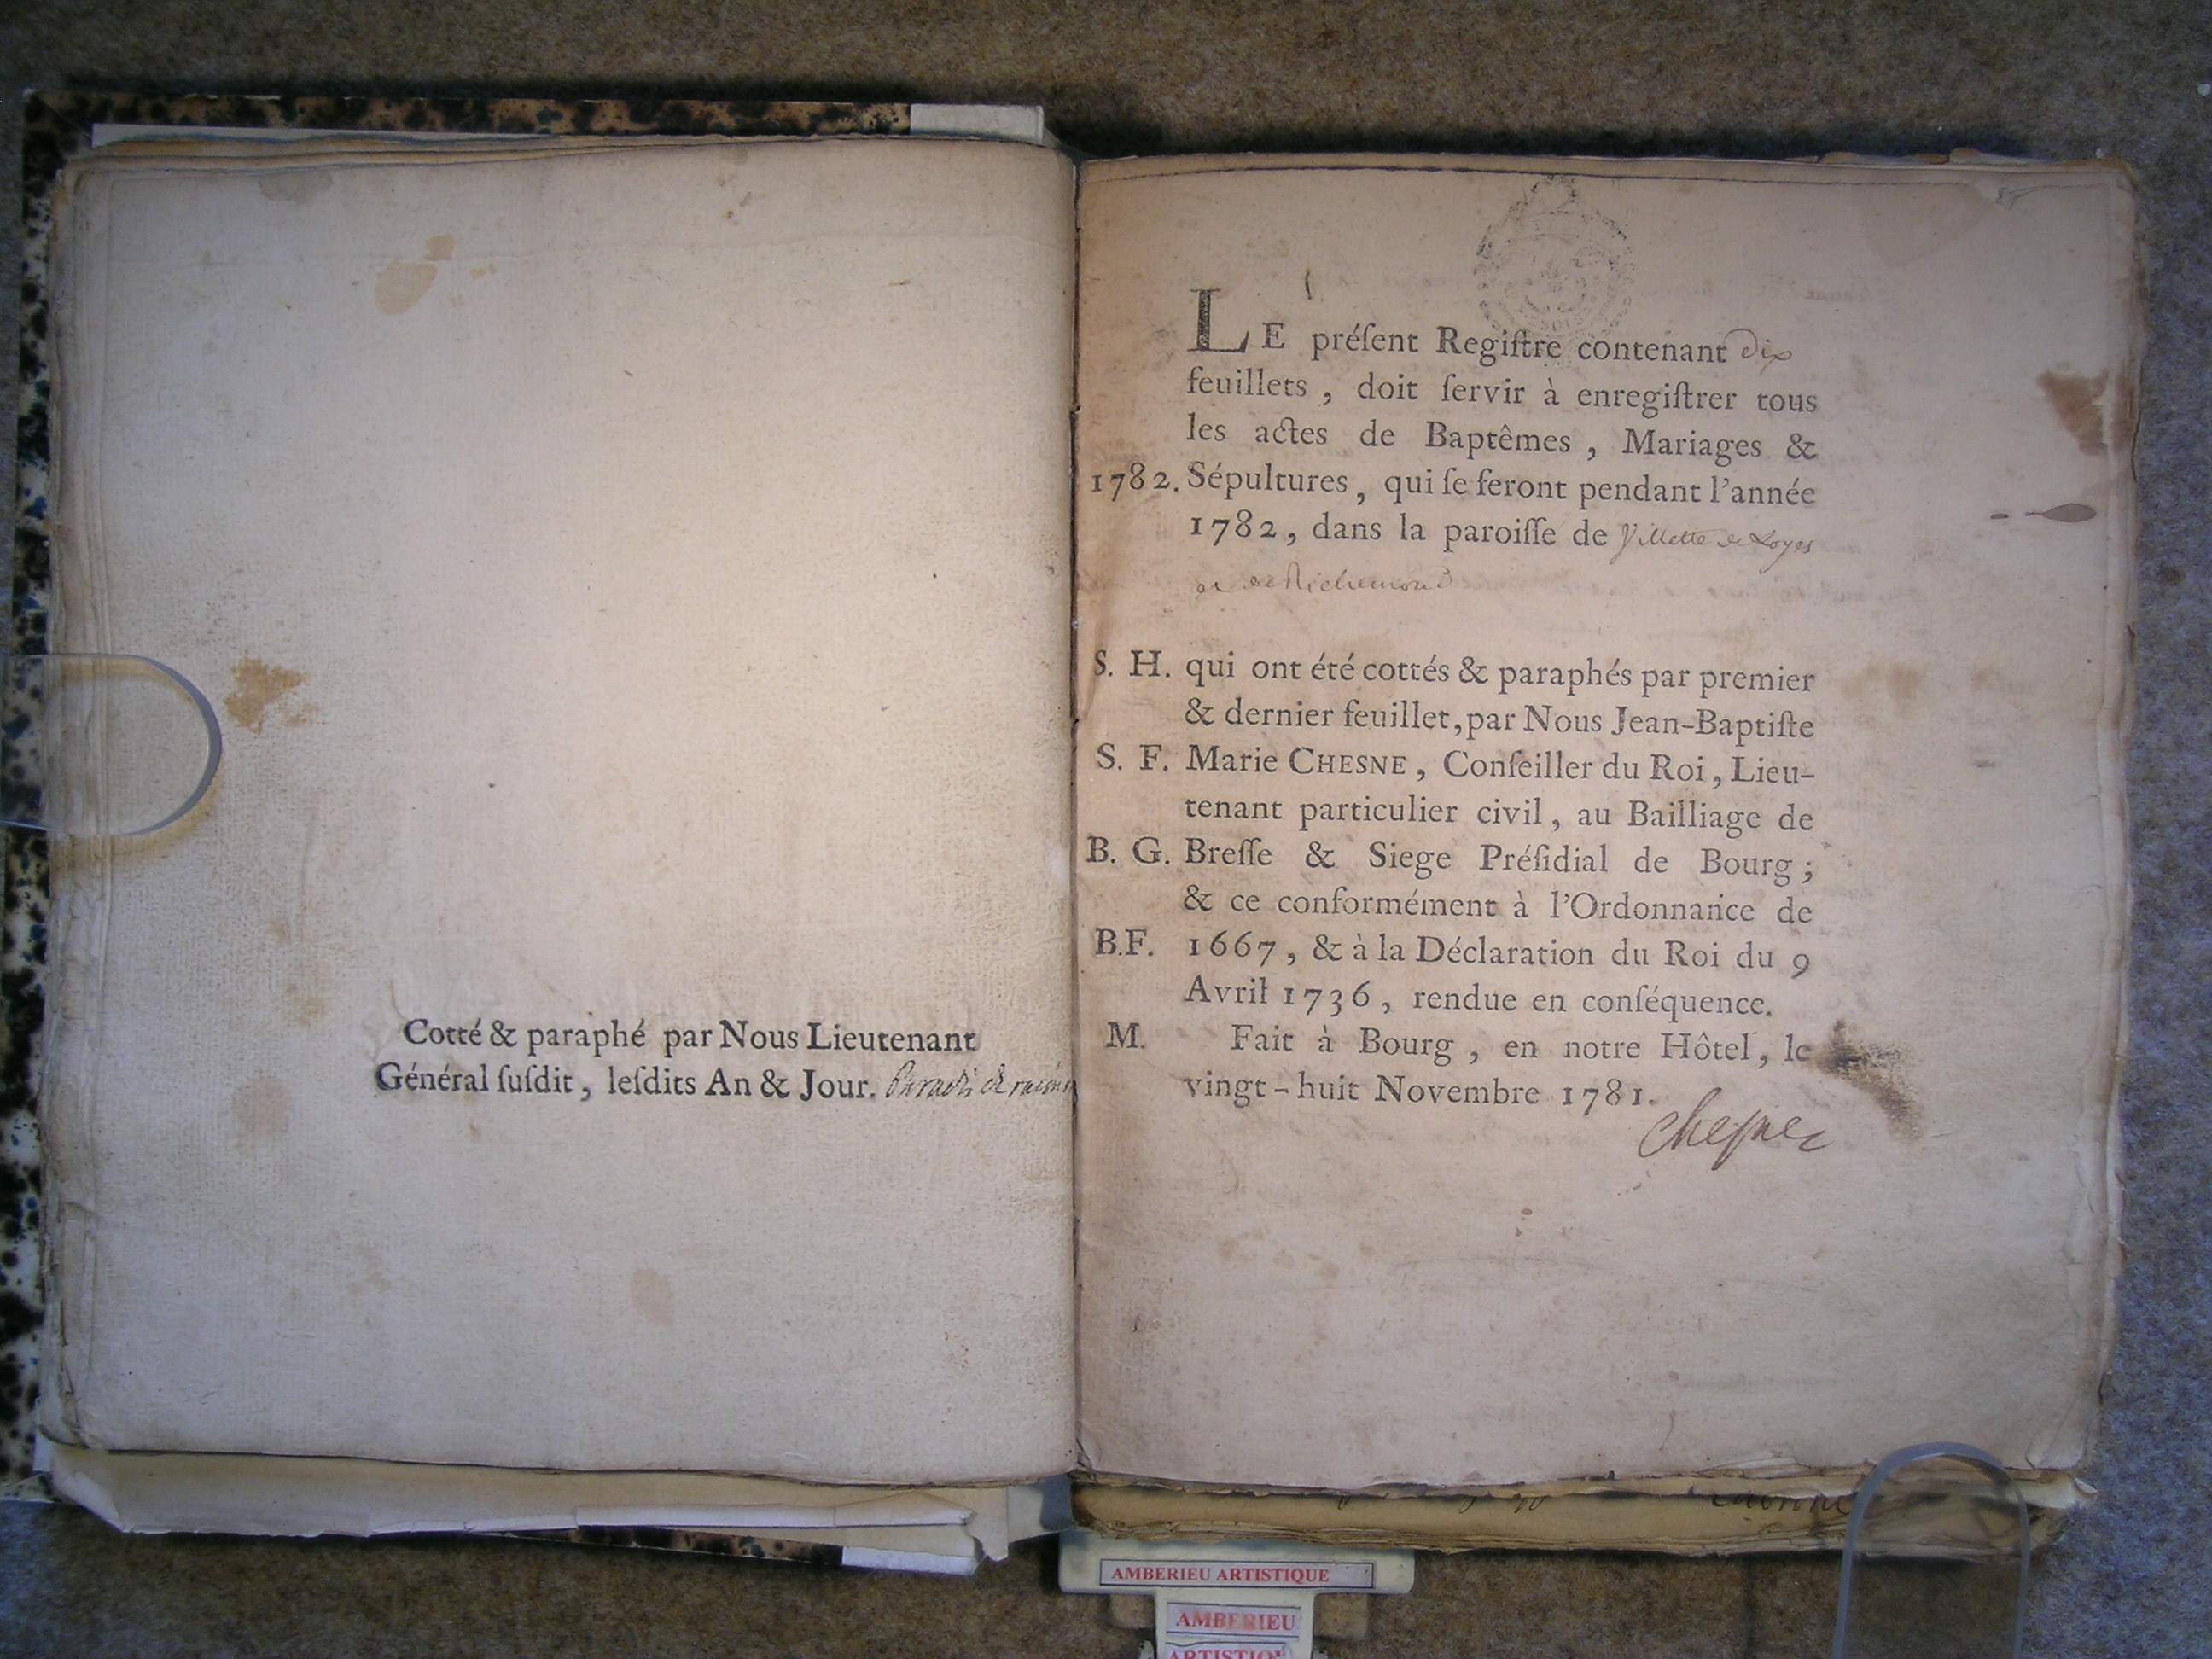 Cotté & paraphé par Nous Lieutenant
Général ſuſdit, leſdits An & Jour.
1.
LE préſent Regiſtre contenant dix
feuillets, doit ſervir à enregiſtrer tous
les actes de Baptêmes, Mariages &
1782. Sépultures, qui ſe feront pendant l'année
1782, dans la paroiſſe de Villette de Loyes
et de Richemond
S. H. qui ont été cottés & paraphés par premier
& dernier feuillet, par Nous Jean-Baptiſte
S. F. Marie CHESNE, Conſeiller du Roi, Lieu-
tenant particulier civil, au Bailliage de
B. G. Breſſe & Siege Préſidial de Bourg;
& ce conformément à l'Ordonnance de
B.F. 1667, & à la Déclaration du Roi du 9
Avril 1736, rendue en conſéquence.
M. Fait à Bourg, en notre Hôtel, le
vingt-huit Novembre 1781.
Chesne
AMBERIEU ARTISTIQUE
AMBERIEU